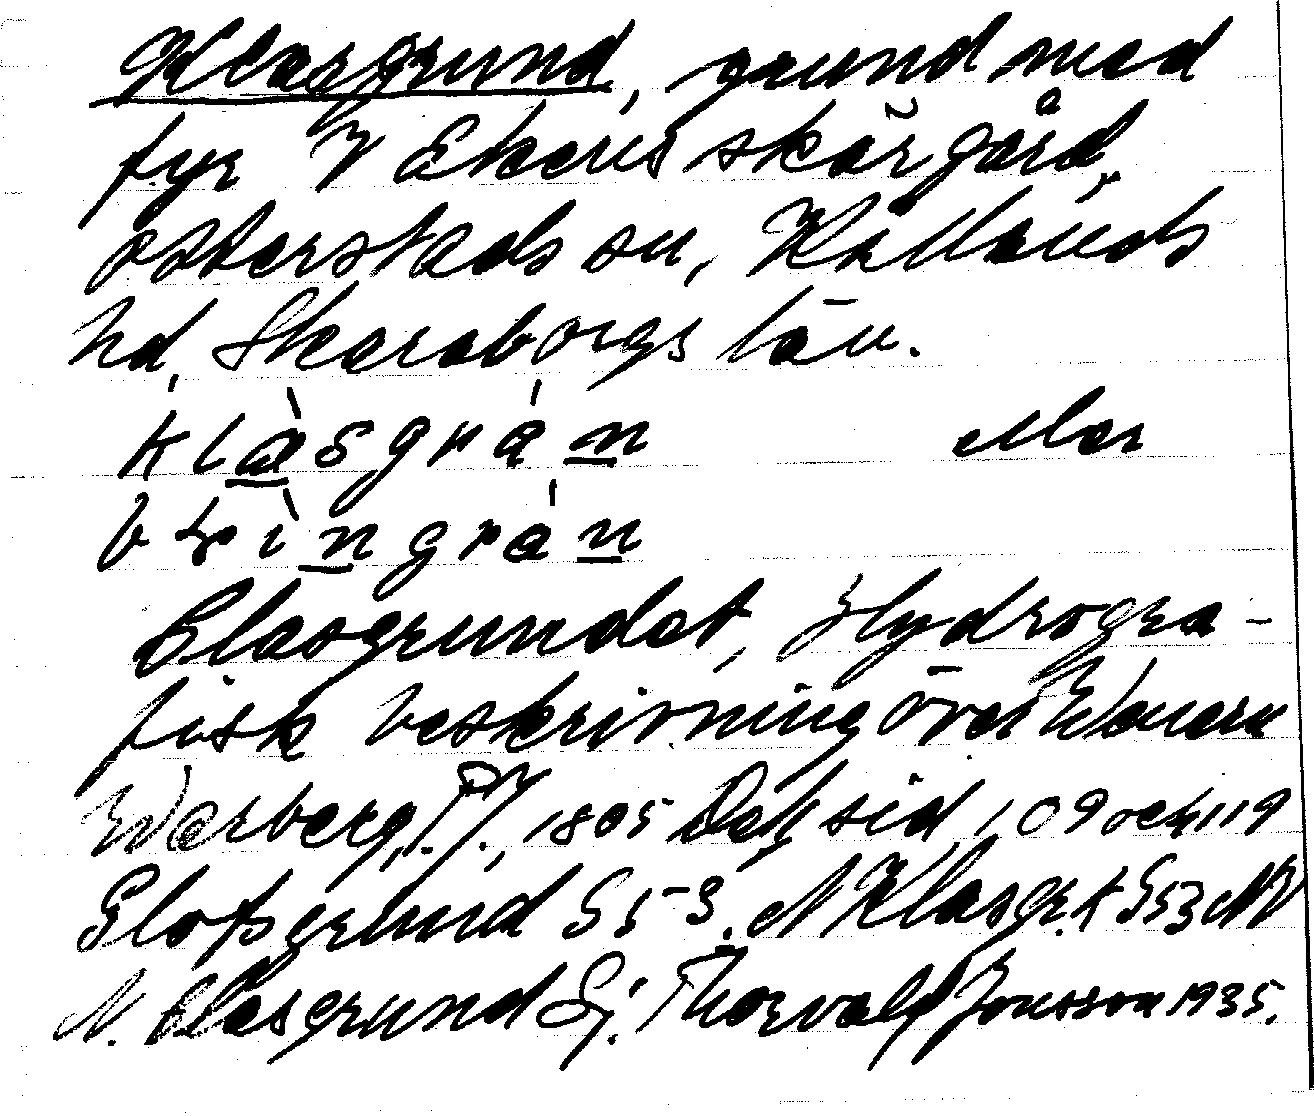 Klasgrund, grund med
fyr i Ekens skärgård,
Otterstads sn, Kållands
hd, Skaraborgs län.
klàsgrán Mar
grán
Clasgrundet, Hydrogra-
fisk beskrivning över Wenern
Warberg, 1805 sid 109 och 119
Gloßgrund G 5 N Klasgr.t G53
N. Clasgrund Sj. Thorvald Jonsson 1935.